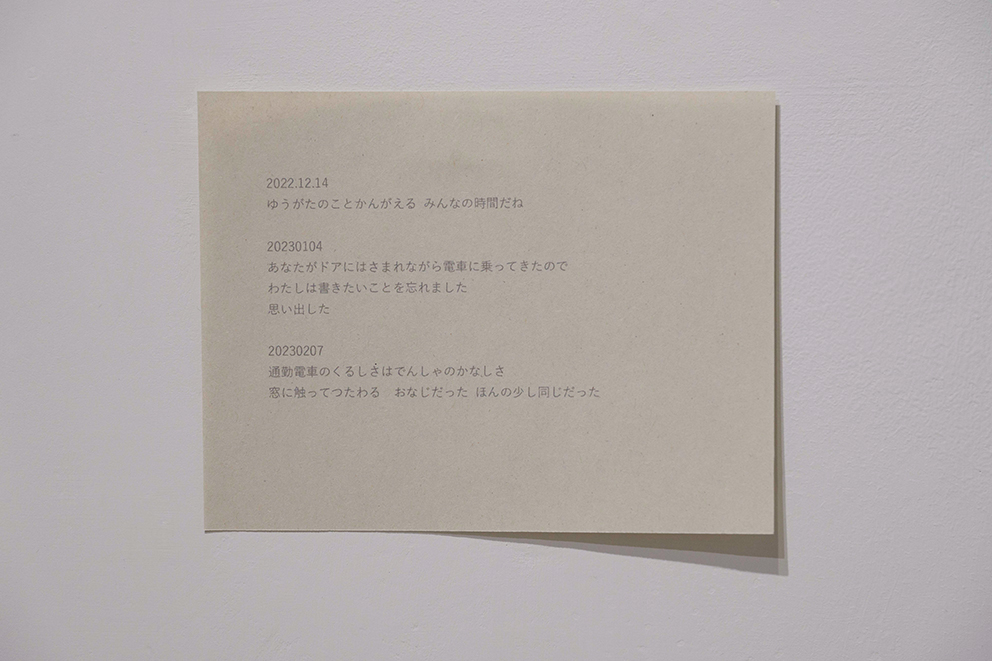 2022.12.14
ゆうがたのことかんがえる みんなの時間だね
20230104
あなたがドアにはさまれながら電車に乗ってきたので
わたしは書きたいことを忘れました
思い出した
20230207
通勤電車のくるしさはでんしゃのかなしさ
窓に触ってつたわる　おなじだった ほんの少し同じだった